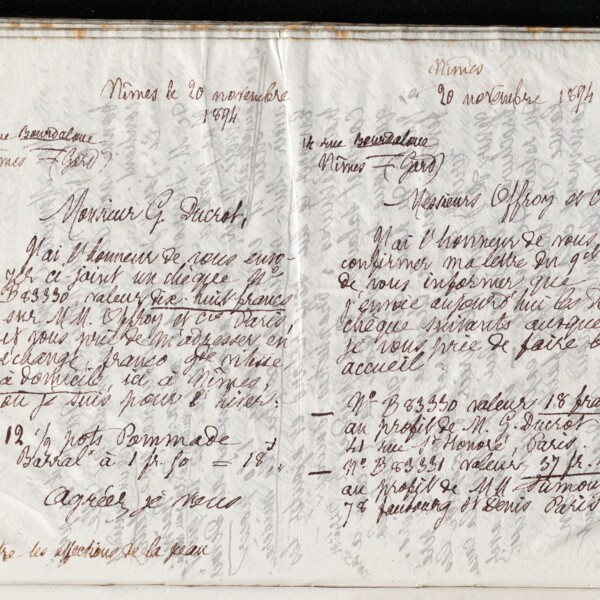 Nîmes le 20 novembre
1894
rue Bourdaloue
Nîmes (Gard)
Monsieur G. Ducrot,
J'ai l'honneur de vous envo-
yer ci joint un chèque No
B 83330 valeur dix-huit francs
sur M.M. Offroy et Cie Paris,
et vous prie de m'adresser en
échange, franco gde vitesse,
à domicile, ici à Nîmes,
où je suis pour l'hiver:
12 1/2 pots Pommade
Barral à 1 fr. 50 = 18 f. "
Agréez je vous
les affections de la peau
Nîmes
20 novembre 1894
14 rue Bourdaloue
Nîmes (Gard)
Messieurs Offroy et C
J'ai l'honneur de vous
confirmer ma lettre du 9 ct
de vous informer que
j'envoie aujourd'hui les
chèque suivants auxquels
je vous prie de faire b
accueil.
— No B 83330 valeur 18 fra
au profit de M. G. Ducrot
41 rue St Honoré, Paris.
— No B 83331 valeur 37 fr.
au profit de MM.
78 faubourg St Denis Paris